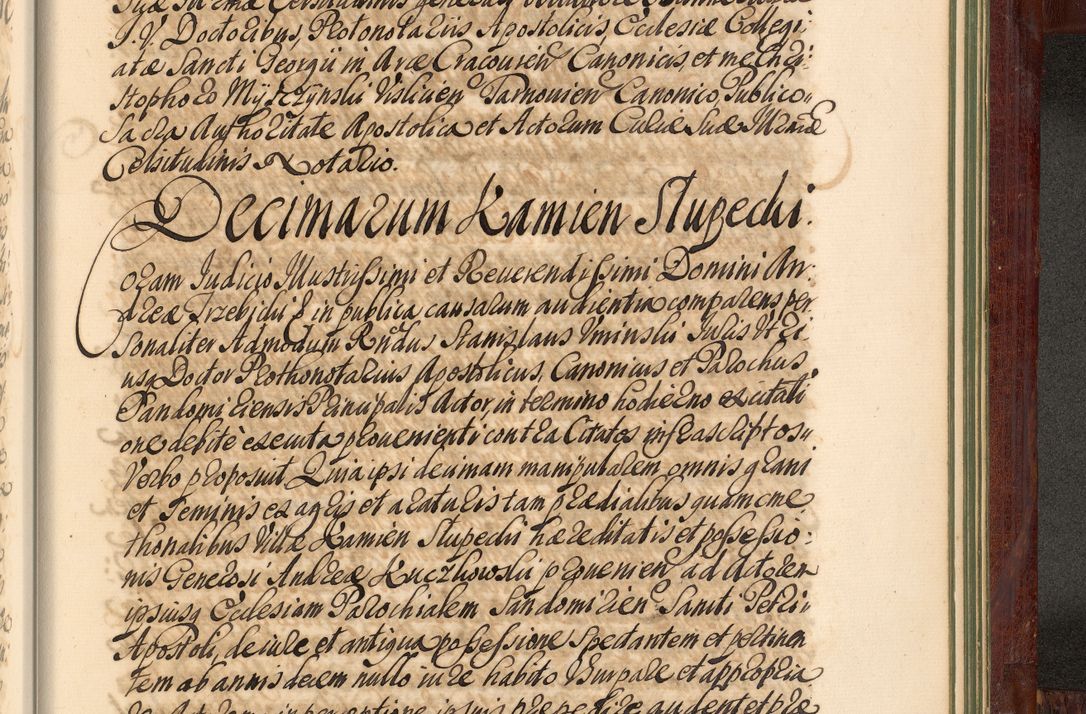 J. V. Doctoribus, Protonotariis Apostolicis, Ecclesiæ Collegi
atæ Sancti Georgii in Arce Cracovien Canonicis, et me Chri
stophoro Myszczynski Vislicien Tarnovien Canonico, Publico
Sacra Authoritate Apostolica et Actorum Curiæ Suæ Illmæ
Celsitudinis Notario.
Decimarum Kamien Slupecki.
Coram Judicio Illustrissimi et Reverendissimi Domini An
dreæ Trzebicki E in publica causarum audientia comparens per
sonaliter Admodum Rndus Stanislaus Uminski Juris Utri
usq Doctor Prothonotarius Apostolicus, Canonicus et Parochus
Sandomiriensis Principalis Actor, in termino hodierno ex citati
one debitè executa provenienti contra Citatos infrascriptos
Verbo proposuit, Quia ipsi decimam manipularem omnis grani
et Seminis ex agris et araturis tam prædialibus quam cme
thonalibus Villæ Kamien Slupecki hæreditatis et possessio
nis Generosi Andreæ Kuczkowski provenien ad Actorem
ipsiusq Ecclesiam Parochialem Sandomirien Sancti Petri
Apostoli, de iure et antiqua possessione spectantem et pertinen
tem ab annis decem nullo iure habito Usurpare et appropria